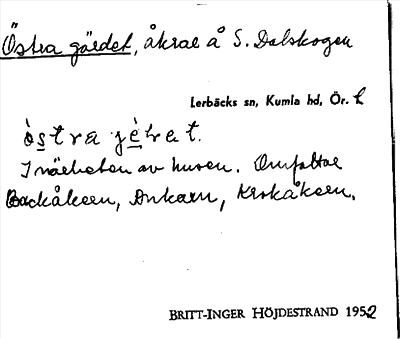 Östra gärdet, åkrar å S. Dalskogen
Lerbäcks sn, Kumla hd, Ör. l
òstra jè̱lrat.
I närheten av husen. Omfattar
Backåkern, Ankarn, Krokåkern.
BRITT-INGER HÖJDESTRAND 1952